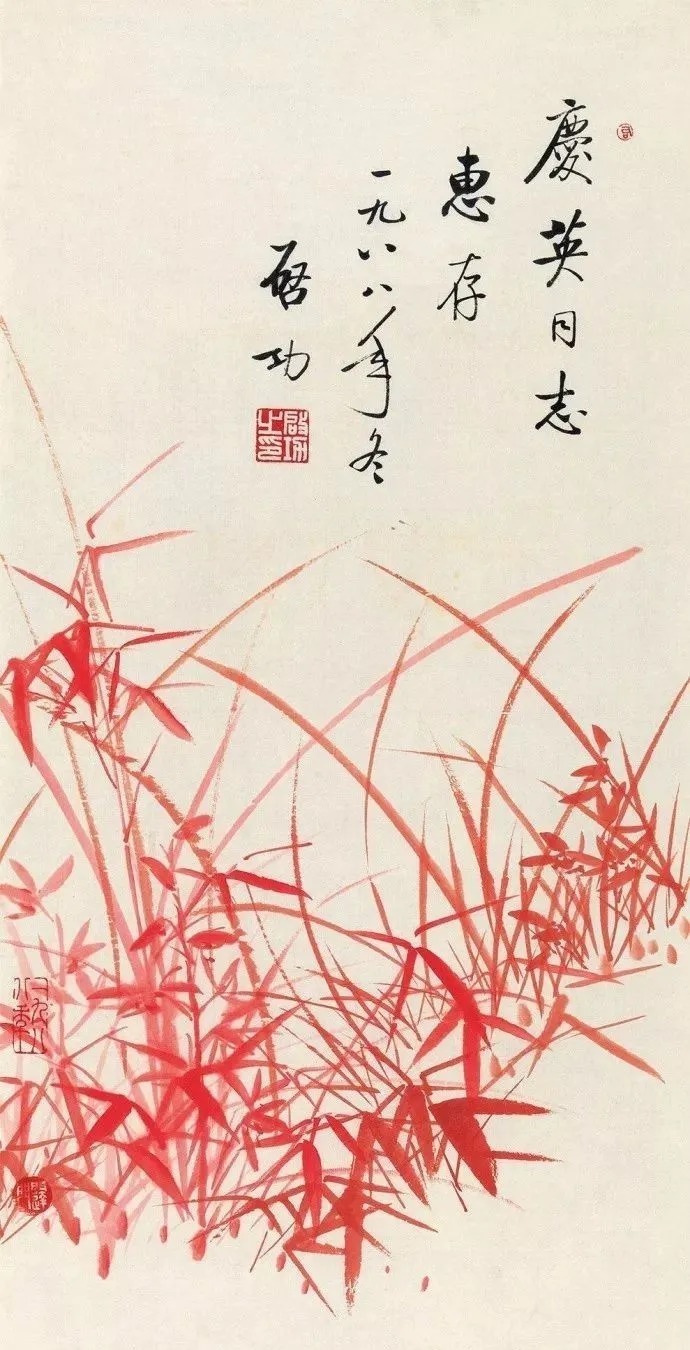 慶英同志
惠存
一九八八年冬
啓功
啓功之印